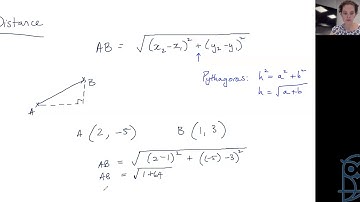 Distance
AB = √(x₂-x₁)² + (y₂-y₁)²
↑
Pythagoras: h² = a² + b²
h = √a+b
B
A
A (2, -5) B (1, 3)
AB = √(2-1)² + ((-5)-3)²
AB = √1+64